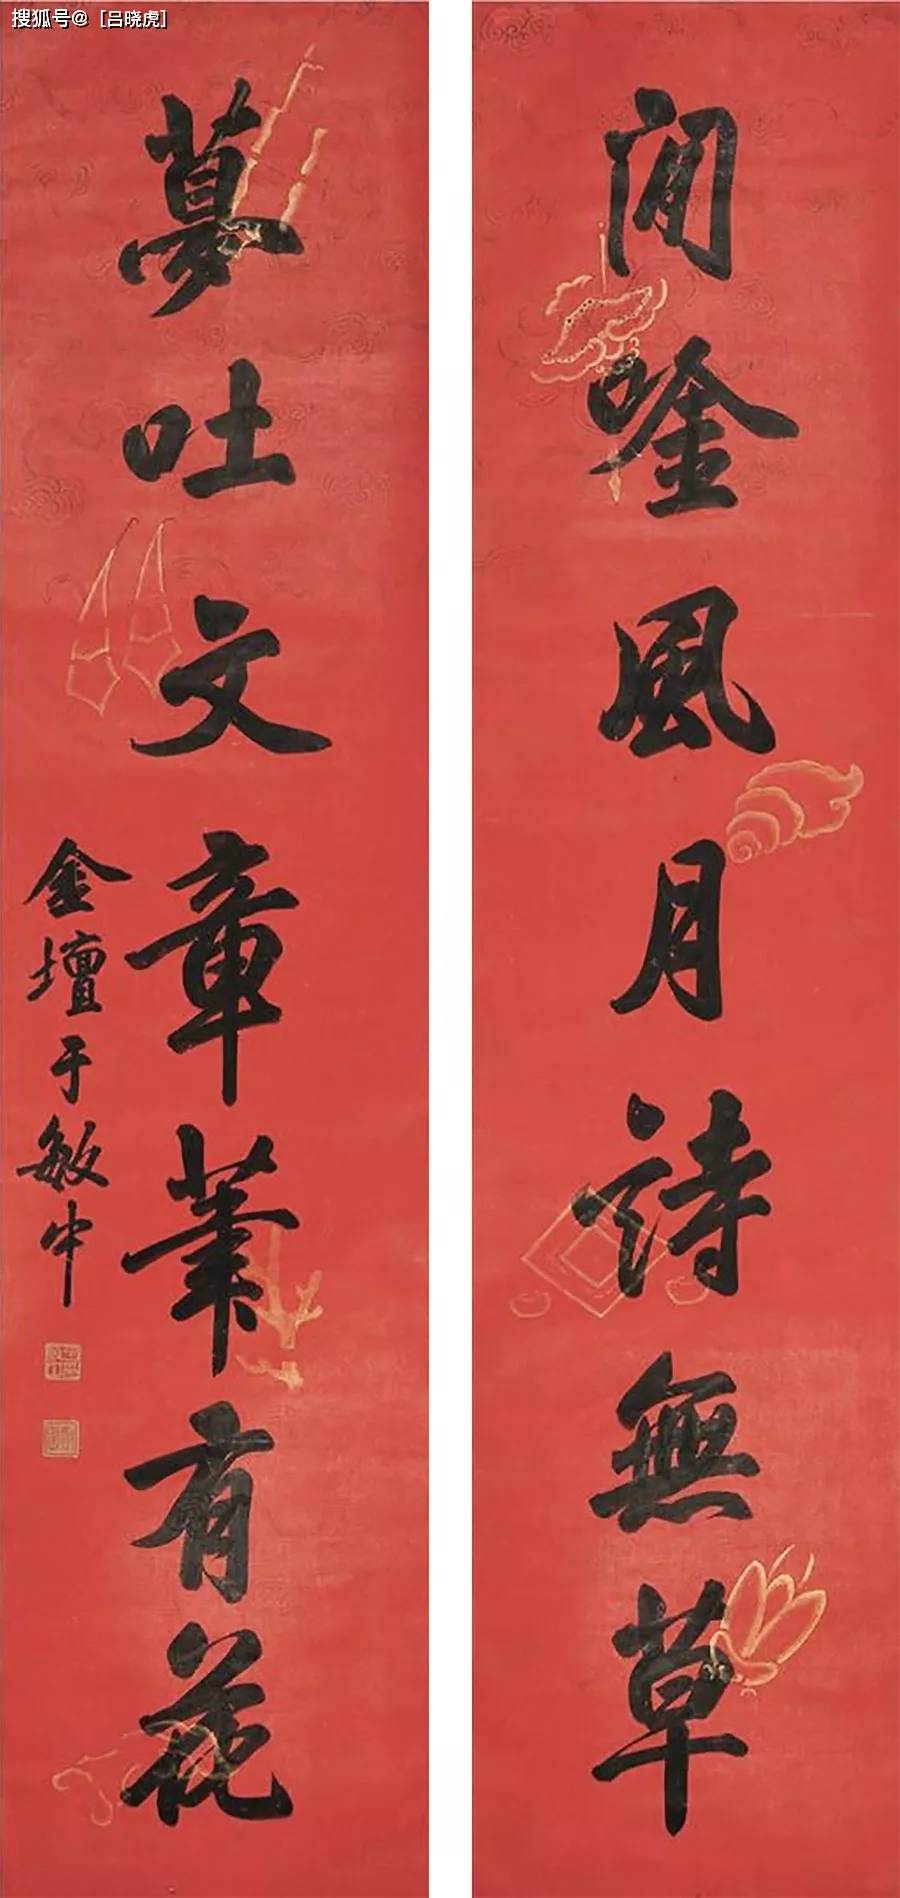 搜狐号@［吕晓虎］
閒唫風月詩無草
夢吐文章筆有花
金壇于敏中